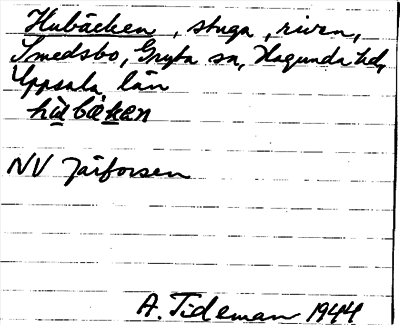 Hubäcken, stuga, riven,
Smedsbo, Gryta sn, Hagunda hd,
Uppsala län
hu̲bäk̲en
NV Järforsen
A. Tideman 1944